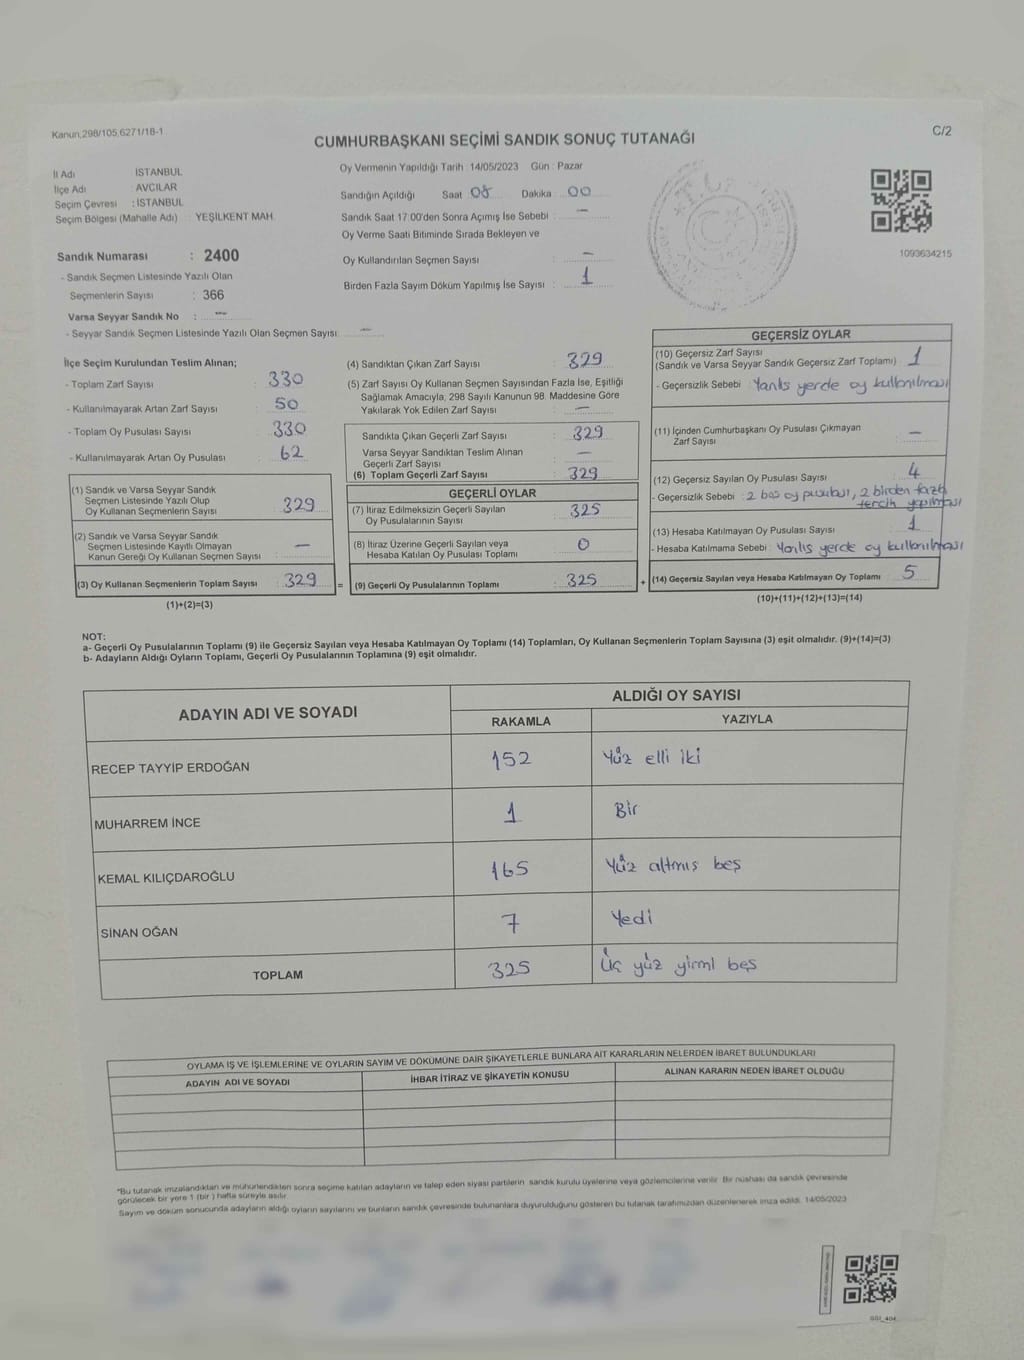 Kanun,298/105,6271/18-1
C/2
CUMHURBAŞKANI SEÇİMİ SANDIK SONUÇ TUTANAĞI
İl Adı İSTANBUL
İlçe Adı AVCILAR
Seçim Çevresi : İSTANBUL
Seçim Bölgesi (Mahalle Adı) : YEŞİLKENT MAH.
Sandık Numarası : 2400
- Sandık Seçmen Listesinde Yazılı Olan
Seçmenlerin Sayısı : 366
Varsa Seyyar Sandık No : —
- Seyyar Sandık Seçmen Listesinde Yazılı Olan Seçmen Sayısı: —
Oy Vermenin Yapıldığı Tarih :14/05/2023 Gün : Pazar
Sandığın Açıldığı Saat 08 Dakika 00
Sandık Saat 17:00'den Sonra Açımış İse Sebebi : —
Oy Verme Saati Bitiminde Sırada Bekleyen ve
Oy Kullandırılan Seçmen Sayısı : —
Birden Fazla Sayım Döküm Yapılmış İse Sayısı : 1
1093634215
İlçe Seçim Kurulundan Teslim Alınan;
- Toplam Zarf Sayısı : 330
- Kullanılmayarak Artan Zarf Sayısı : 50
- Toplam Oy Pusulası Sayısı : 330
- Kullanılmayarak Artan Oy Pusulası : 62
(1) Sandık ve Varsa Seyyar Sandık
Seçmen Listesinde Yazılı Olup
Oy Kullanan Seçmenlerin Sayısı : 329
(2) Sandık ve Varsa Seyyar Sandık
Seçmen Listesinde Kayıtlı Olmayan
Kanun Gereği Oy Kullanan Seçmen Sayısı : —
(3) Oy Kullanan Seçmenlerin Toplam Sayısı : 329 =
(1)+(2)=(3)
(4) Sandıktan Çıkan Zarf Sayısı : 329
(5) Zarf Sayısı Oy Kullanan Seçmen Sayısından Fazla İse, Eşitliği
Sağlamak Amacıyla, 298 Sayılı Kanunun 98. Maddesine Göre
Yakılarak Yok Edilen Zarf Sayısı : —
Sandıkta Çıkan Geçerli Zarf Sayısı : 329
Varsa Seyyar Sandıktan Teslim Alınan
Geçerli Zarf Sayısı : —
(6) Toplam Geçerli Zarf Sayısı : 329
GEÇERLİ OYLAR
(7) İtiraz Edilmeksizin Geçerli Sayılan
Oy Pusulalarının Sayısı : 325
(8) İtiraz Üzerine Geçerli Sayılan veya
Hesaba Katılan Oy Pusulası Toplamı : 0
(9) Geçerli Oy Pusulalarının Toplamı : 325 +
GEÇERSİZ OYLAR
(10) Geçersiz Zarf Sayısı
(Sandık ve Varsa Seyyar Sandık Geçersiz Zarf Toplamı) : 1
- Geçersizlik Sebebi : Yanlış yerde oy kullanılması
(11) İçinden Cumhurbaşkanı Oy Pusulası Çıkmayan
Zarf Sayısı : —
(12) Geçersiz Sayılan Oy Pusulası Sayısı : 4
- Geçersizlik Sebebi : 2 boş oy pusulası, 2 birden fazla
tercih yapılması
(13) Hesaba Katılmayan Oy Pusulası Sayısı : 1
- Hesaba Katılmama Sebebi : Yanlış yerde oy kullanılması
(14) Geçersiz Sayılan veya Hesaba Katılmayan Oy Toplamı : 5
(10)+(11)+(12)+(13)=(14)
NOT:
a- Geçerli Oy Pusulalarının Toplamı (9) ile Geçersiz Sayılan veya Hesaba Katılmayan Oy Toplamı (14) Toplamları, Oy Kullanan Seçmenlerin Toplam Sayısına (3) eşit olmalıdır. (9)+(14)=(3)
b- Adayların Aldığı Oyların Toplamı, Geçerli Oy Pusulalarının Toplamına (9) eşit olmalıdır.
ADAYIN ADI VE SOYADI ALDIĞI OY SAYISI
RAKAMLA YAZIYLA
RECEP TAYYİP ERDOĞAN 152 Yüz elli iki
MUHARREM İNCE 1 Bir
KEMAL KILIÇDAROĞLU 165 Yüz altmış beş
SİNAN OĞAN 7 Yedi
TOPLAM 325 Üç yüz yirmi beş
OYLAMA İŞ VE İŞLEMLERİNE VE OYLARIN SAYIM VE DÖKÜMÜNE DAİR ŞİKAYETLERLE BUNLARA AİT KARARLARIN NELERDEN İBARET BULUNDUKLARI
ADAYIN ADI VE SOYADI İHBAR İTİRAZ VE ŞİKAYETİN KONUSU ALINAN KARARIN NEDEN İBARET OLDUĞU
*Bu tutanak imzalandıktan ve mühürlendikten sonra seçime katılan adayların ve talep eden siyasi partilerin sandık kurulu üyelerine veya gözlemcilerine verilir. Bir nüshası da sandık çevresinde
görülecek bir yere 1 (bir ) hafta süreyle asılır.
Sayım ve döküm sonucunda adayların aldığı oyların sayılarını ve bunların sandık çevresinde bulunanlara duyurulduğunu gösteren bu tutanak tarafımızdan düzenlenerek imza edildi. 14/05/2023